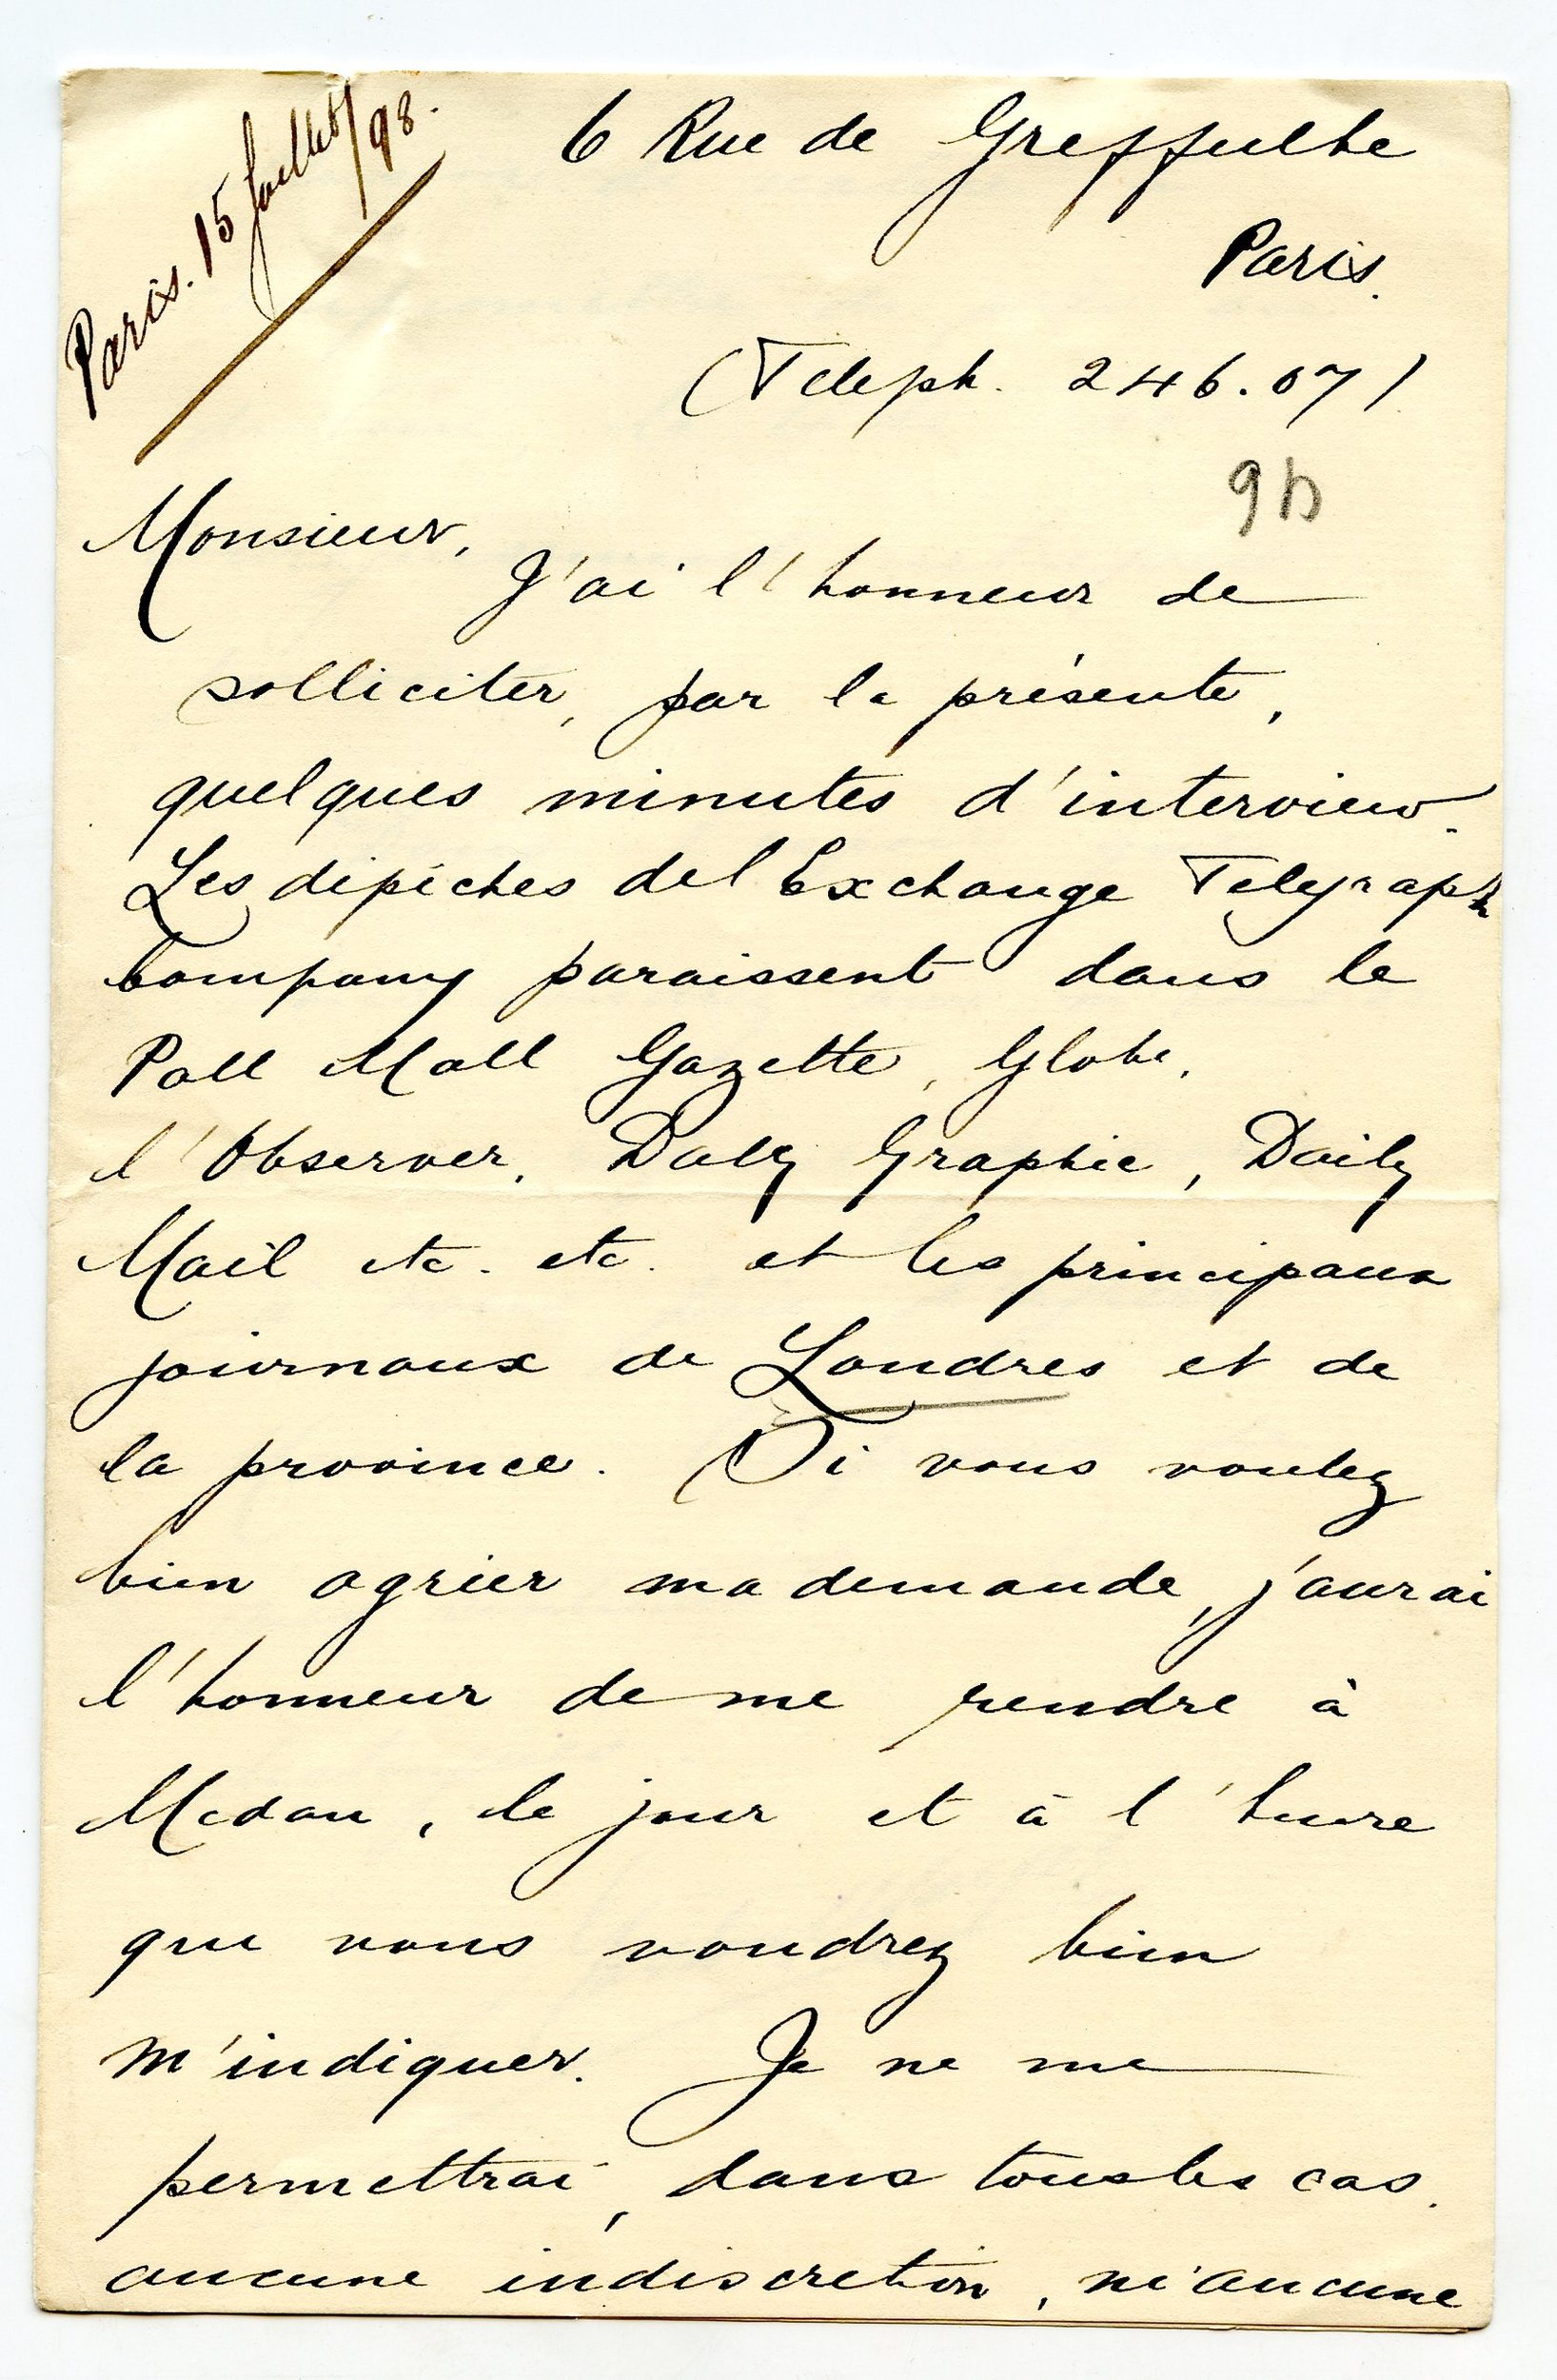 Paris. 15 Juillet/98.
6 Rue de Greffulhe
Paris.
(Teleph. 246.07)
Monsieur,
J'ai l'honneur de
solliciter, par la présente,
quelques minutes d'interview.
Les dépêches del Exchange Telegraph
Company paraissent dans le
Pall Mall Gazette, Globe,
l'Observer, Daly Graphic, Daily
Mail etc. etc. et les principaux
journaux de Londres et de
la province. Si vous voulez
bien agréer ma demande, j'aurai
l'honneur de me rendre à
Medan, le jour et à l'heure
que vous voudrez bien
m'indiquer. Je ne me
permettrai, dans tous les cas,
aucune indiscretion, ni aucune